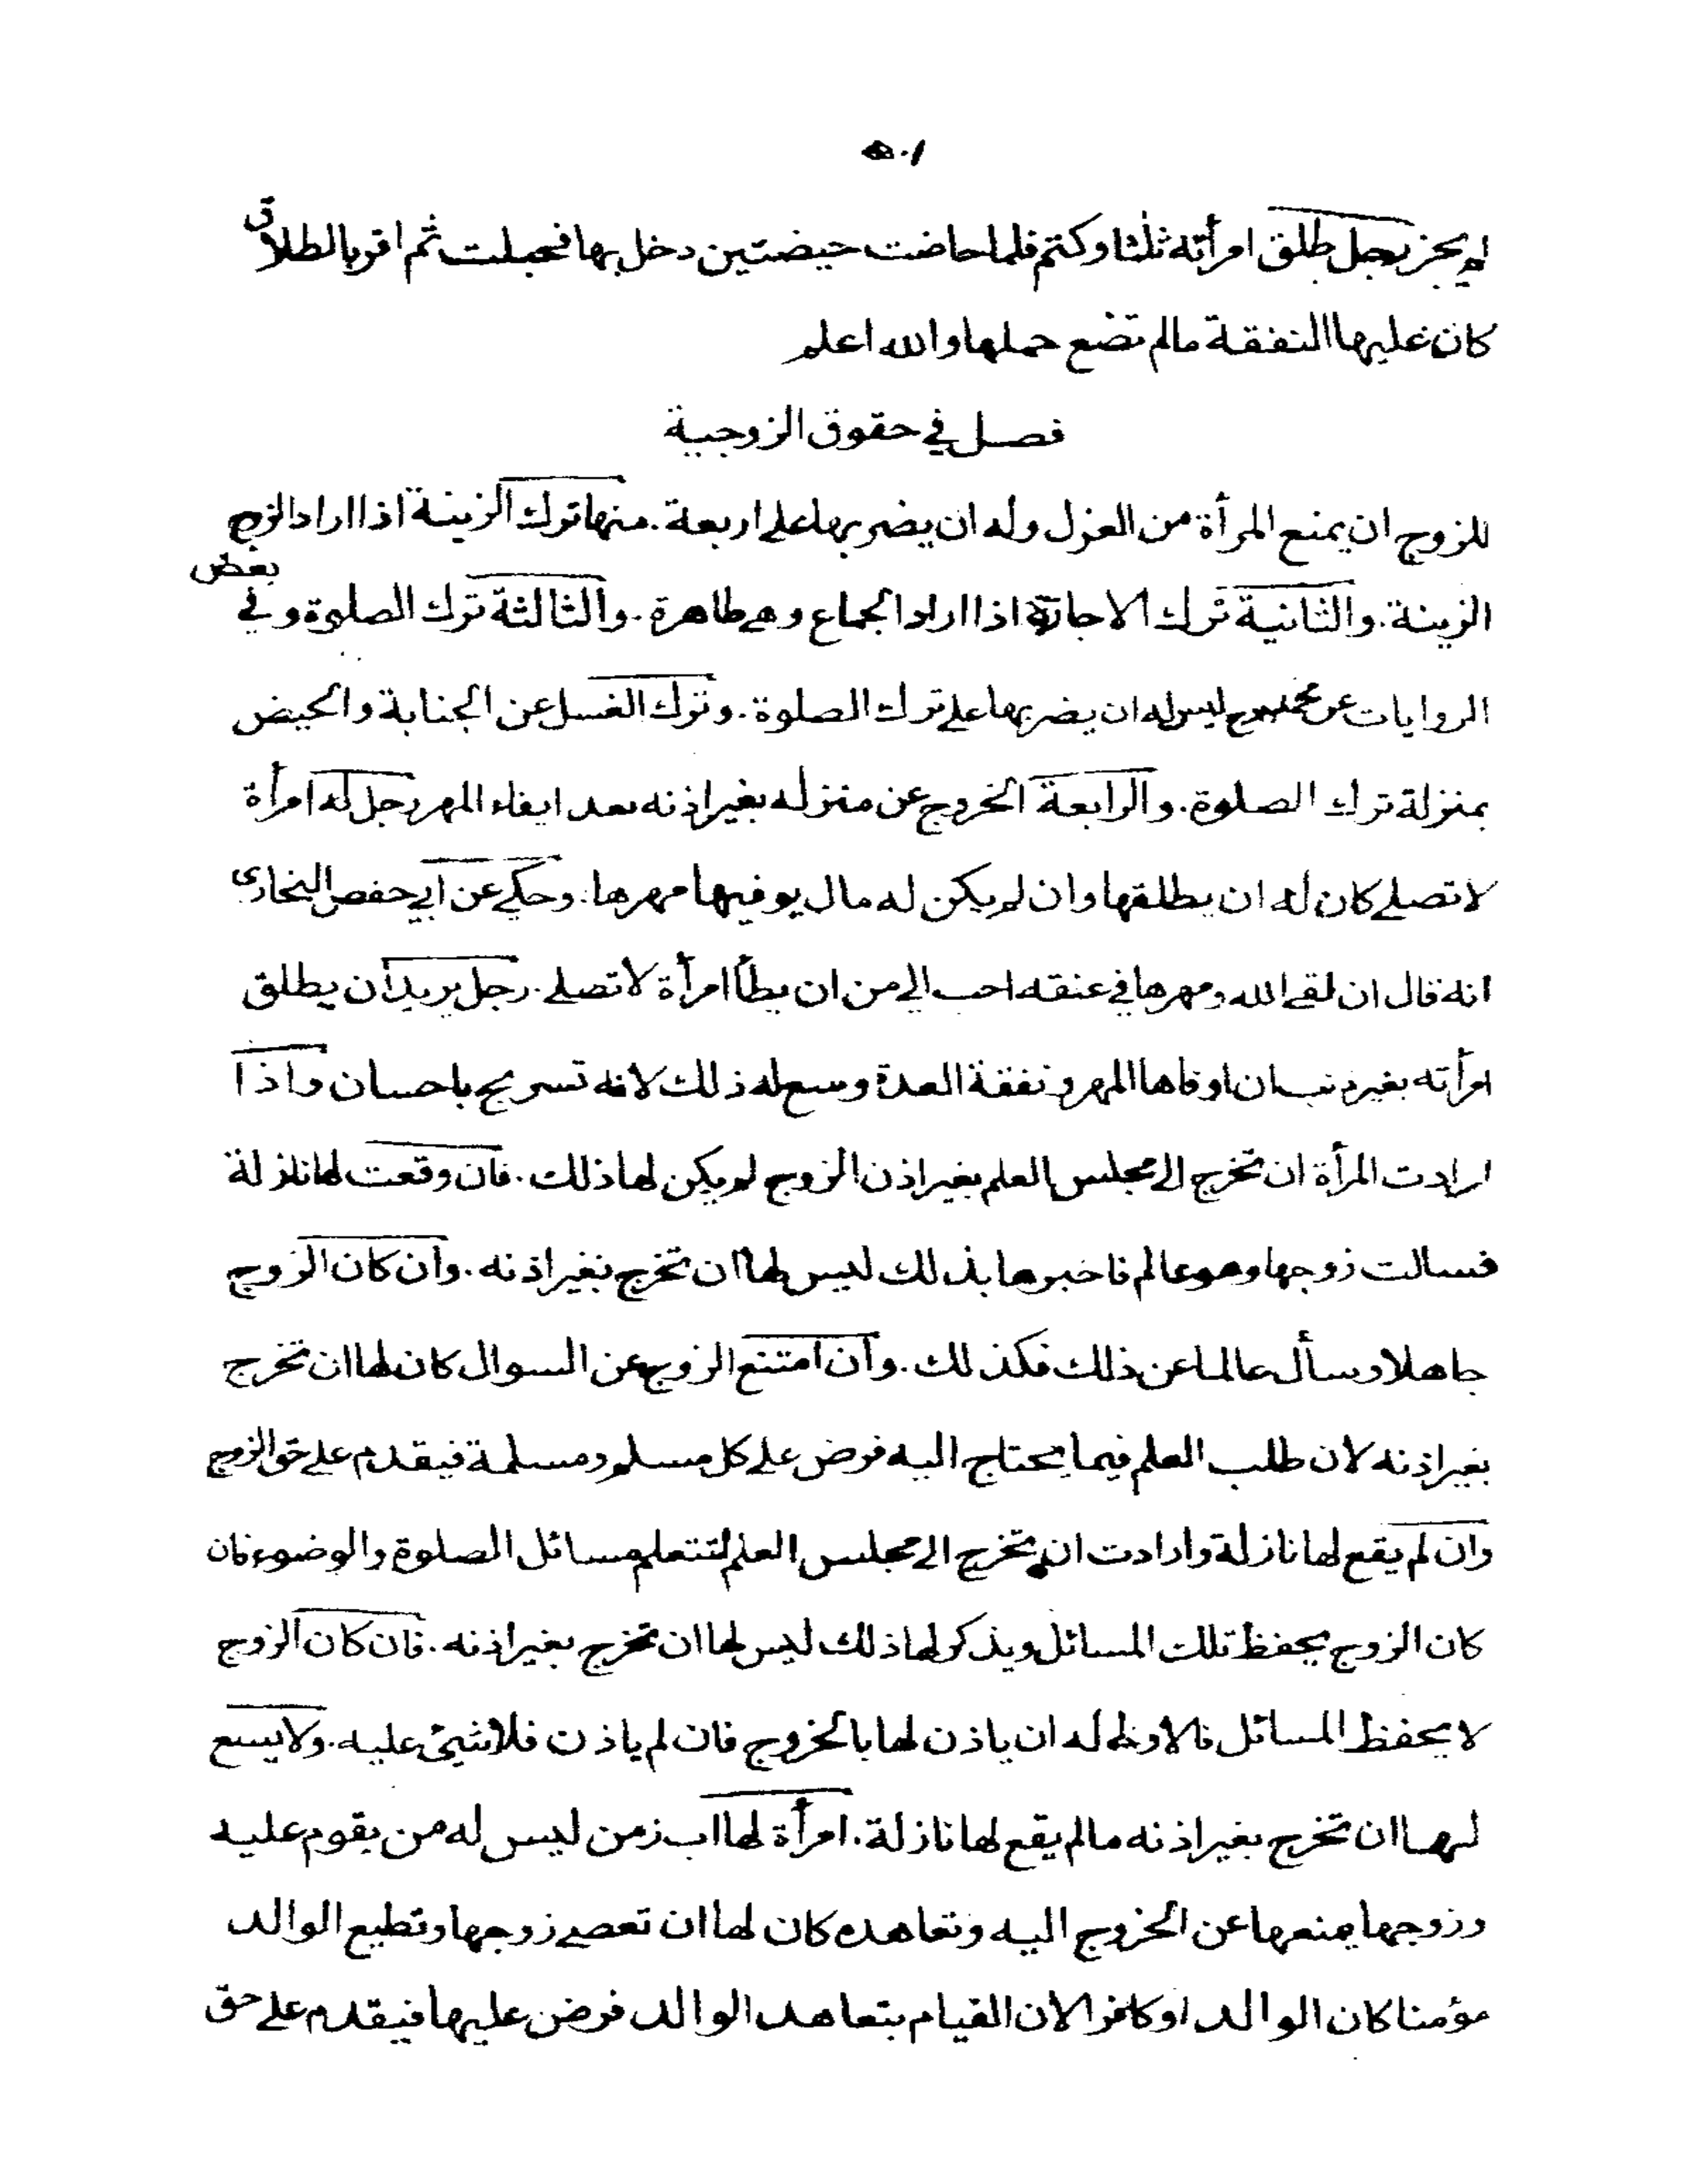 ٥٠١
لم يجز رجل طلق امرأته ثلثا وكتم فلما حاضت حيضتين دخل بها فحبلت ثم اقر بالطلاق
كان عليها النفقة مالم تضع حملها والله اعلم
فصل في حقوق الزوجية
للزوج ان يمنع المرأة من الغزل وله ان يضربها على اربعة . منها ترك الزينة اذا اراد الزوج
الزينة . والثانية ترك الاجابة اذا اراد الجماع وهي طاهرة . والثالثة ترك الصلوة وفي بعض
الروايات عن محمد رح ليس له ان يضربها على ترك الصلوة . وترك الغسل عن الجنابة والحيض
بمنزلة ترك الصلوة . والرابعة الخروج عن منزله بغير اذنه بعد ايفاء المهر رجل له امرأة
لا تصلي كان له ان يطلقها وان لم يكن له مال يوفيها مهرها . وحكي عن ابي حفص البخارى
انه قال ان لقي الله ومهرها في عنقه احب الي من ان يطأ امرأة لا تصلي . رجل يريد ان يطلق
امرأته بغير ذنب ان اوفاها المهر ونفقة العدة وسع له ذلك لانه تسريح باحسان واذا
ارادت المرأة ان تخرج الى مجلس العلم بغير اذن الزوج لم يكن لها ذلك . فان وقعت لها نازلة
فسالت زوجها وهو عالم فاخبرها بذلك ليس لها ان تخرج بغير اذنه . وان كان الزوج
جاهلا وسأل عالما عن ذلك فكذلك . وان امتنع الزوج عن السوال كان لها ان تخرج
بغير اذنه لان طلب العلم فيما يحتاج اليه فرض على كل مسلم ومسلمة فيقدم على حق الزوج
وان لم يقع لها نازلة وارادت ان تخرج الى مجلس العلم لتتعلم مسائل الصلوة والوضوء فان
كان الزوج يحفظ تلك المسائل ويذكر لها ذلك ليس لها ان تخرج بغير اذنه . فان كان الزوج
لا يحفظ المسائل فالاولى له ان ياذن لها بالخروج فان لم ياذن فلا شيئ عليه . ولا يسع
لها ان تخرج بغير اذنه مالم يقع لها نازلة . امرأة لها اب زمن ليس له من يقوم عليه
وزوجها يمنعها عن الخروج اليه وتعاهده كان لها ان تعصي زوجها وتطيع الوالد
مؤمنا كان الوالد او كافرا لان القيام بتعاهد الوالد فرض عليها فيقدم على حق